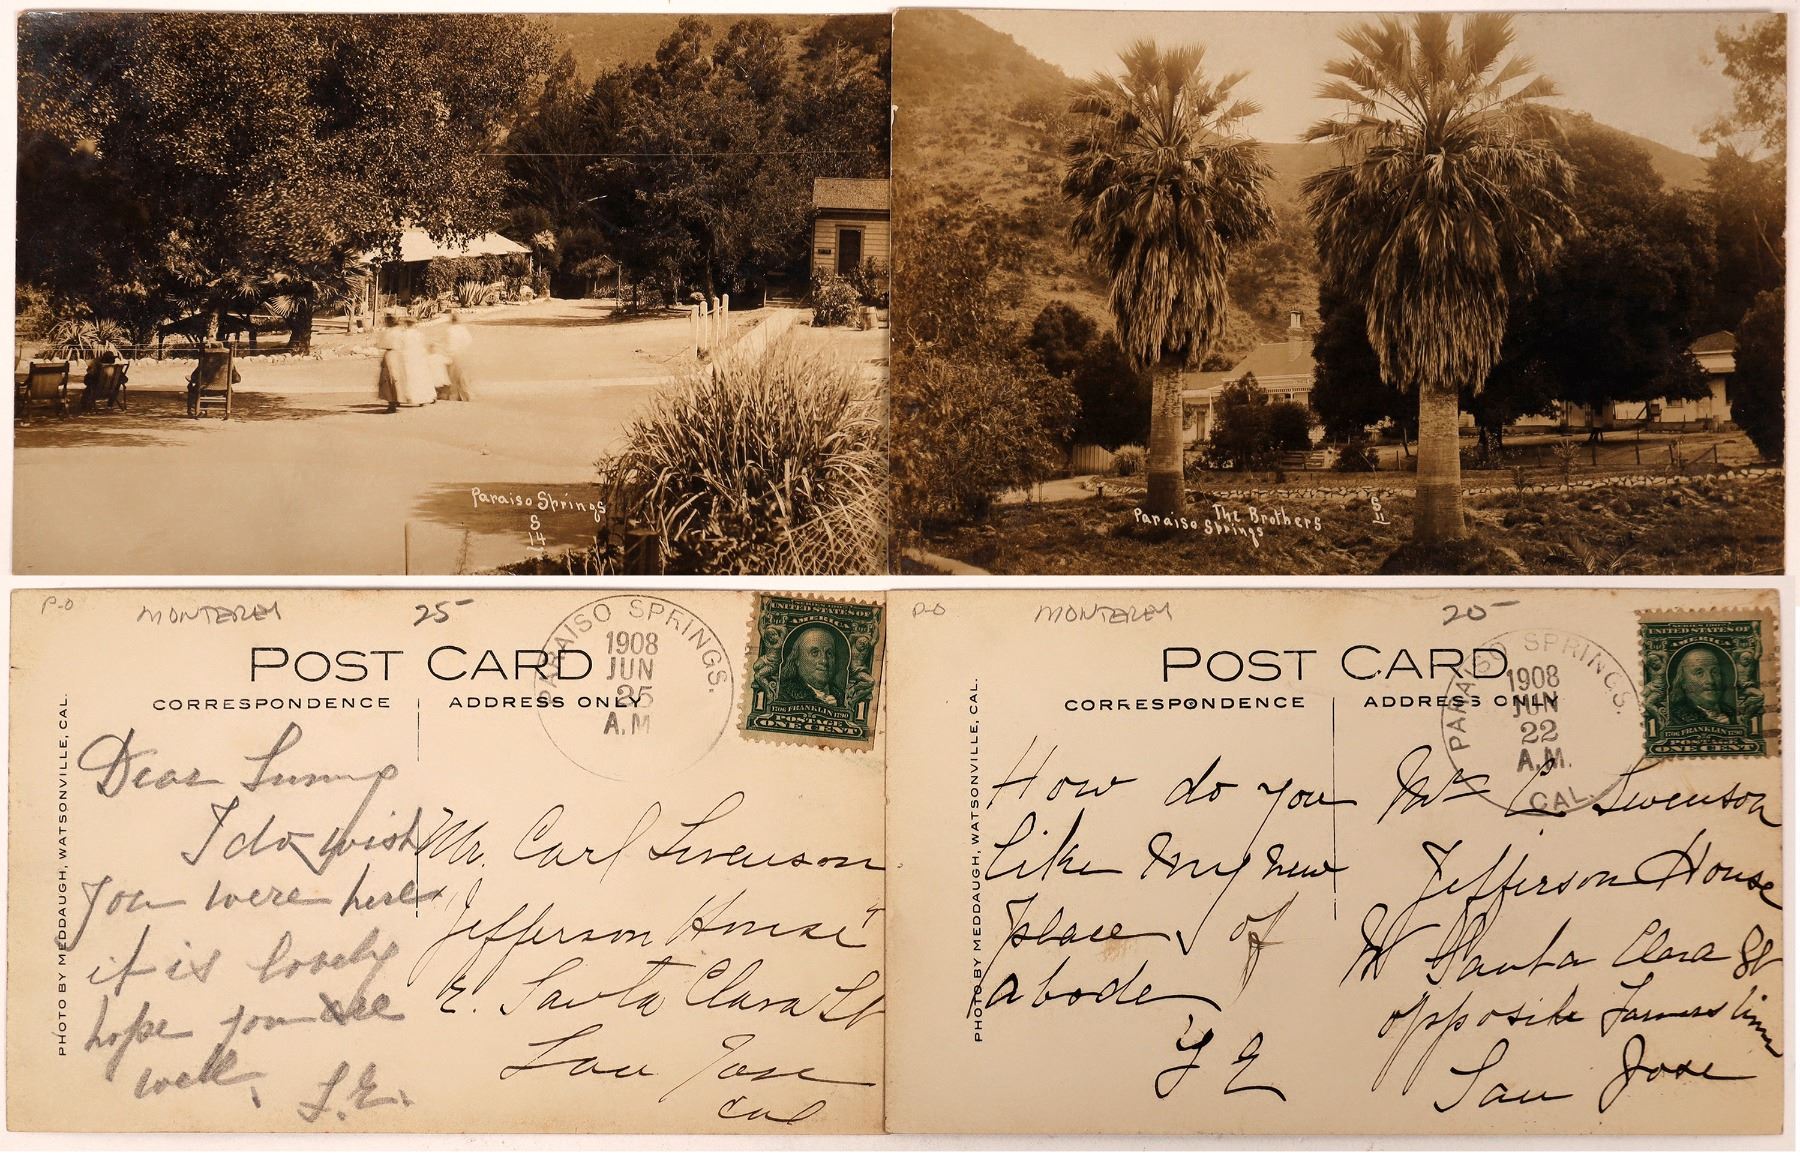 Paraiso Springs
S
14
The Brothers
Paraiso Springs
S
11
P-O
MONTEREY
25-
PARAISO SPRINGS.
1908
JUN
25
A.M
SERIES 1902
UNITED STATES OF
AMERICA
1706 FRANKLIN 1790
POSTAGE
1 ONE CENT 1
POST CARD
CORRESPONDENCE
ADDRESS ONLY
PHOTO BY MEDDAUGH, WATSONVILLE, CAL.
Dear
I do wish
you were here
it is lovely
hope you are
well.
Mr. Carl Swenson
Jefferson House
E. Santa Clara St
San Jose
Cal
P-O
MONTEREY
20-
PARAISO SPRINGS.
1908
JUN
22
A.M.
CAL.
SERIES 1902
UNITED STATES OF
AMERICA
1706 FRANKLIN 1790
POSTAGE
1 ONE CENT 1
POST CARD
CORRESPONDENCE
ADDRESS ONLY
PHOTO BY MEDDAUGH, WATSONVILLE, CAL.
How do you
like my new
place of
abode
Mr C Swenson
Jefferson House
W Santa Clara St
opposite Farmers
San Jose